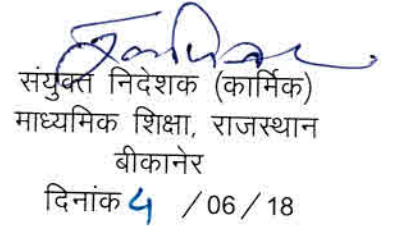 संयुक्त निदेशक (कार्मिक)
माध्यमिक शिक्षा, राजस्थान
बीकानेर
दिनांक 4 /06/18